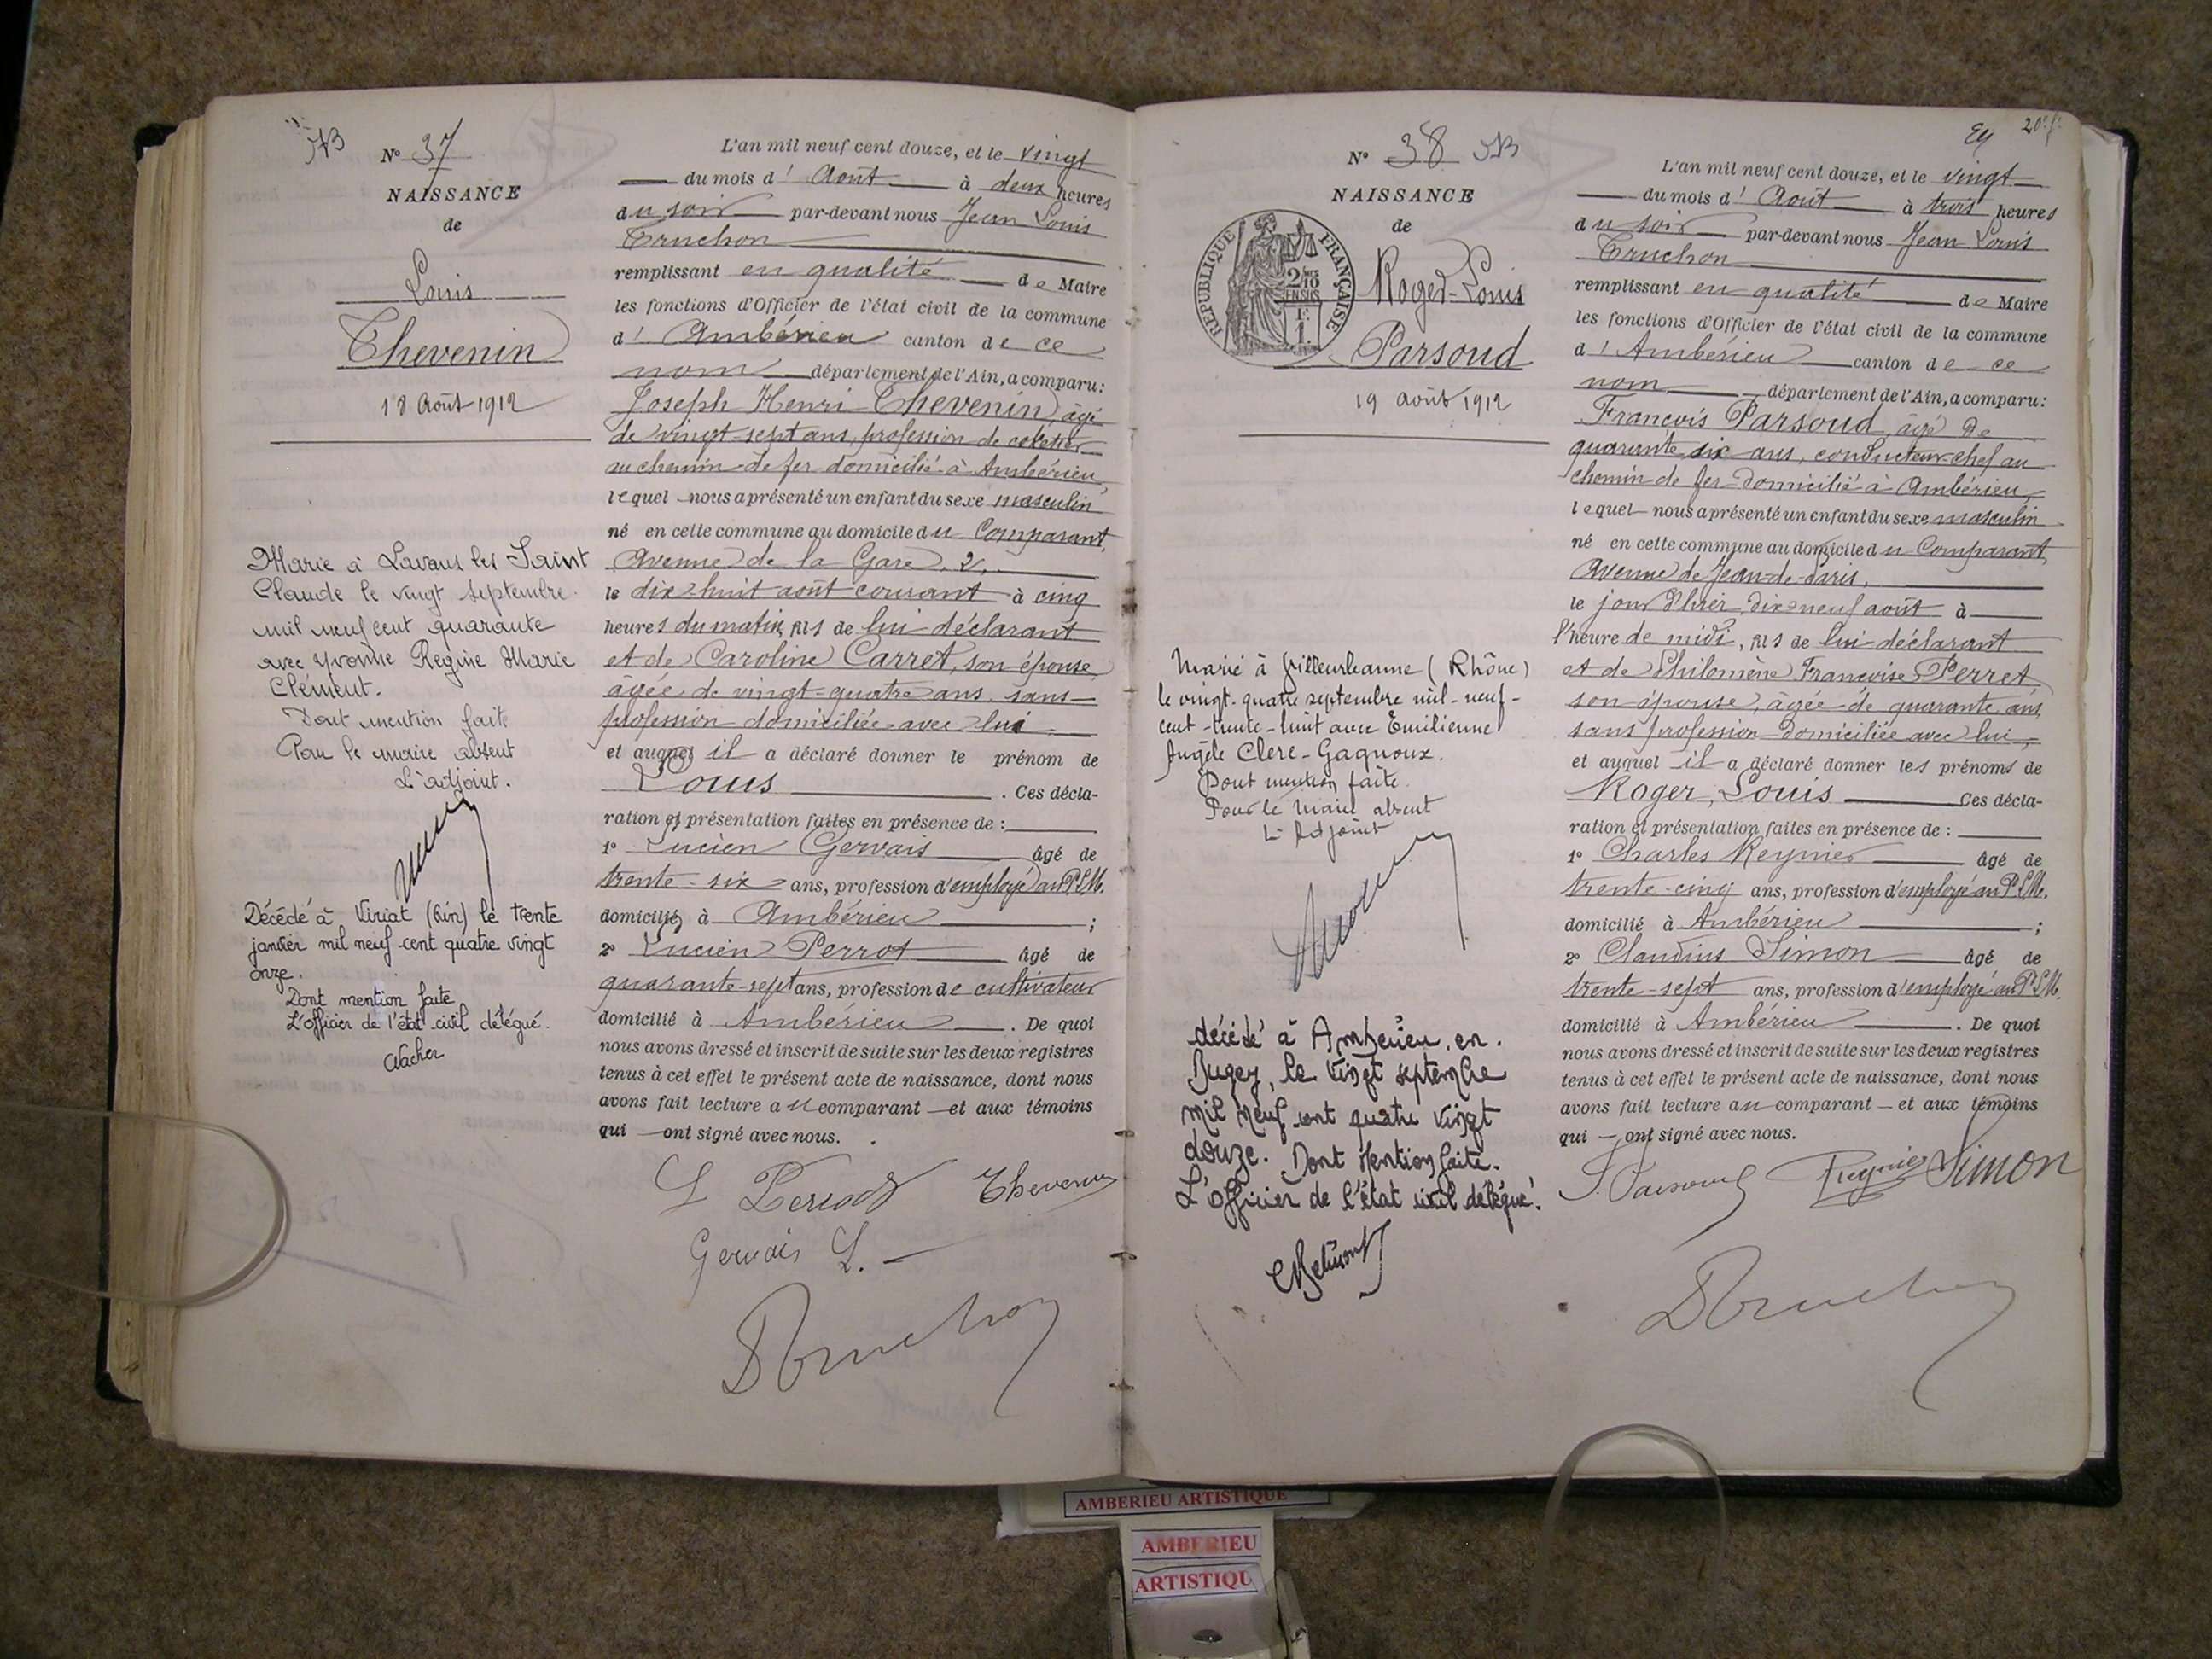 N° 37
NAISSANCE
de
Louis
Thevenin
18 Août 1912
Marié à Lavans les Saint
Claude le vingt septembre
mil neuf cent quarante
avec Yvonne Régine Marie
Clément.
Dont mention faite
Pour le maire absent
L'adjoint.
Décédé à Viriat (Ain) le trente
janvier mil neuf cent quatre vingt
onze.
Dont mention faite
L'officier de l'état civil délégué.
L'an mil neuf cent douze, et le vingt
du mois d'Août à deux heures
du soir par-devant nous Jean Louis
Truchon
remplissant en qualité de Maire
les fonctions d'Officier de l'état civil de la commune
d'Ambérieu canton de ce
nom département de l'Ain, a comparu:
Joseph Henri Thevenin, âgé
de vingt-sept ans, profession de
au chemin de fer domicilié à Ambérieu,
lequel nous a présenté un enfant du sexe masculin
né en cette commune au domicile du Comparant,
Avenue de la Gare, 2,
le dix-huit août courant à cinq
heures du matin, fils de lui déclarant
et de Caroline Carret, son épouse,
âgée de vingt-quatre ans, sans
profession domiciliée avec lui
et auquel il a déclaré donner le prénom de
Louis. Ces décla-
ration et présentation faites en présence de :
1° Lucien Gervais âgé de
trente-six ans, profession d'employé au P.L.M.
domicilié à Ambérieu ;
2° Lucien Perrot âgé de
quarante-sept ans, profession de cultivateur
domicilié à Ambérieu. De quoi
nous avons dressé et inscrit de suite sur les deux registres
tenus à cet effet le présent acte de naissance, dont nous
avons fait lecture au comparant et aux témoins
qui ont signé avec nous.
L Perrot Thevenin
Gervais L.
Truchon
N° 38
NAISSANCE
de
RÉPUBLIQUE FRANÇAISE
Roger-Louis
Parsoud
19 août 1912
Marié à Villeurbanne (Rhône)
le vingt-quatre septembre mil-neuf-
cent-trente-huit avec Emilienne
Angèle Clerc-Gagnoux.
Dont mention faite.
Pour le Maire absent
L'Adjoint
décédé à Ambérieu-en-
Bugey, le vingt septembre
mil neuf cent quatre vingt
douze. Dont Mention faite.
L'officier de l'état civil délégué.
20e f.
L'an mil neuf cent douze, et le vingt
du mois d'Août à trois heures
du soir par-devant nous Jean Louis
Truchon
remplissant en qualité de Maire
les fonctions d'Officier de l'état civil de la commune
d'Ambérieu canton de ce
nom département de l'Ain, a comparu:
François Parsoud, âgé de
quarante six ans, conducteur-chef au
chemin de fer domicilié à Ambérieu,
lequel nous a présenté un enfant du sexe masculin
né en cette commune au domicile du Comparant,
Avenue de Jean-de-Paris,
le jour d'hier, dix-neuf août à
l'heure de midi, fils de lui déclarant
et de Philomène Françoise Perret
son épouse, âgée de quarante ans,
sans profession domiciliée avec lui,
et auquel il a déclaré donner les prénoms de
Roger, Louis Ces décla-
ration et présentation faites en présence de :
1° Charles Reynier âgé de
trente-cinq ans, profession d'employé au P.L.M.
domicilié à Ambérieu ;
2° Claudius Simon âgé de
trente-sept ans, profession d'employé au P.L.M.
domicilié à Ambérieu. De quoi
nous avons dressé et inscrit de suite sur les deux registres
tenus à cet effet le présent acte de naissance, dont nous
avons fait lecture au comparant et aux témoins
qui ont signé avec nous.
F. Parsoud Reynier Simon
Truchon
AMBERIEU ARTISTIQUE
AMBERIEU
ARTISTIQU